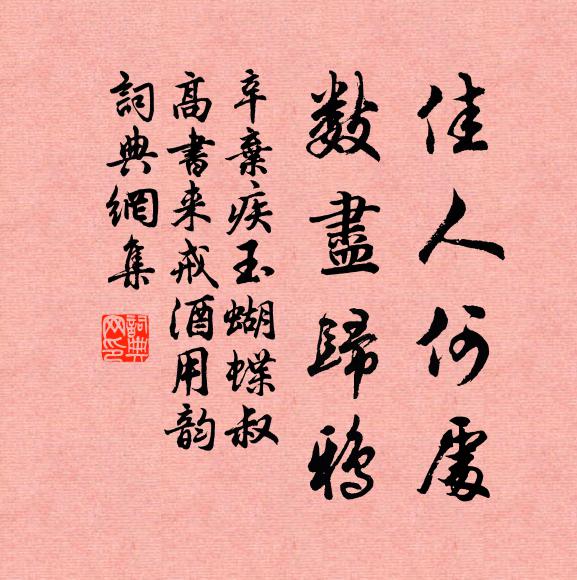 佳人何處
數盡歸鴉
辛棄疾玉蝴蝶叔
高書来戒酒用韵
詞典網集
詞典
网印